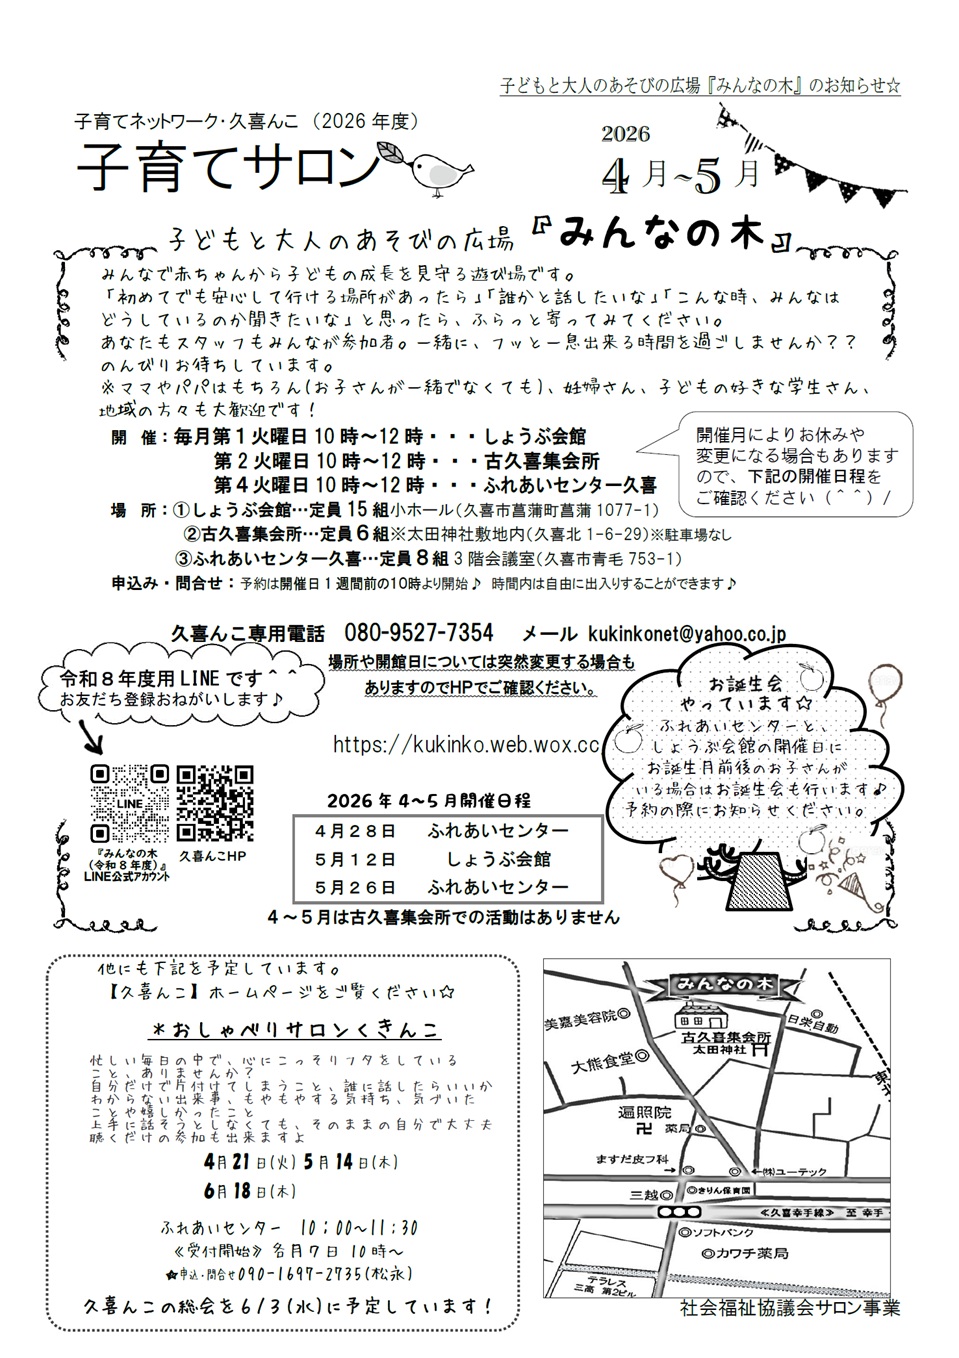 子どもと大人のあそびの広場『みんなの木』のお知らせ☆
子育てネットワーク・久喜んこ （2026 年度）
子育てサロン
2026
4月～5月
子どもと大人のあそびの広場『みんなの木』
みんなで赤ちゃんから子どもの成長を見守る遊び場です。
「初めてでも安心して行ける場所があったら」「誰かと話したいな」「こんな時、みんなは
どうしているのか聞きたいな」と思ったら、ふらっと寄ってみてください。
あなたもスタッフもみんなが参加者。一緒に、フッと一息出来る時間を過ごしませんか？？
のんびりお待ちしています。
※ママやパパはもちろん(お子さんが一緒でなくても)、妊婦さん、子どもの好きな学生さん、
地域の方々も大歓迎です！
開 催：毎月第１火曜日 10 時～12 時・・・しょうぶ会館
第２火曜日 10 時～12 時・・・古久喜集会所
第４火曜日 10 時～12 時・・・ふれあいセンター久喜
開催月によりお休みや
変更になる場合もあります
ので、下記の開催日程を
ご確認ください（＾＾）/
場 所：①しょうぶ会館…定員 15 組小ホール（久喜市菖蒲町菖蒲 1077-1）
②古久喜集会所…定員６組※太田神社敷地内（久喜北 1-6-29）※駐車場なし
③ふれあいセンター久喜…定員８組 3 階会議室（久喜市青毛 753-1）
申込み・問合せ：予約は開催日１週間前の10時より開始♪ 時間内は自由に出入りすることができます♪
久喜んこ専用電話 080-9527-7354 メール kukinkonet@yahoo.co.jp
場所や開館日については突然変更する場合も
ありますのでHPでご確認ください。
https://kukinko.web.wox.cc
令和８年度用 LINE です＾＾
お友だち登録おねがいします♪
LINE
『みんなの木
（令和８年度）』
LINE公式アカウント
久喜んこHP
お誕生会
やっています☆
ふれあいセンターと、
しょうぶ会館の開催日に
お誕生月前後のお子さんが
いる場合はお誕生会も行います♪
予約の際にお知らせください。
2026 年 4～5 月開催日程
４月２８日 ふれあいセンター
５月１２日 しょうぶ会館
５月２６日 ふれあいセンター
４～５月は古久喜集会所での活動はありません
他にも下記を予定しています。
【久喜んこ】ホームページをご覧ください☆
＊おしゃべりサロンくきんこ
忙しい毎日の中で、心にこっそりフタをしている
こと、ありませんか？
自分だけで片付けてしまうこと、誰に話したらいいか
わからない出来事、もやもやする気持ち、気づいた
ことや嬉しかったこと
上手に話そうとしなくても、そのままの自分で大丈夫
聴くだけの参加も出来ますよ
4月 21 日(火) 5 月 14 日(木)
6月 18 日(木)
ふれあいセンター 10：00～11：30
《受付開始》各月７日 10 時～
★申込・問合せ 090-1697-2735(松永)
久喜んこの総会を 6/3(水)に予定しています！
みんなの木
美嘉美容院◎
古久喜集会所
太田神社
日栄自動
大熊食堂◎
遍照院
卍 薬局◎
ますだ皮フ科
→◎
◎←㈱ユーテック
三越◎
◎きりん保育園
《久喜幸手線》 至 幸手
◎ソフトバンク
◎カワチ薬局
テラレス
三高 第2ビル
社会福祉協議会サロン事業